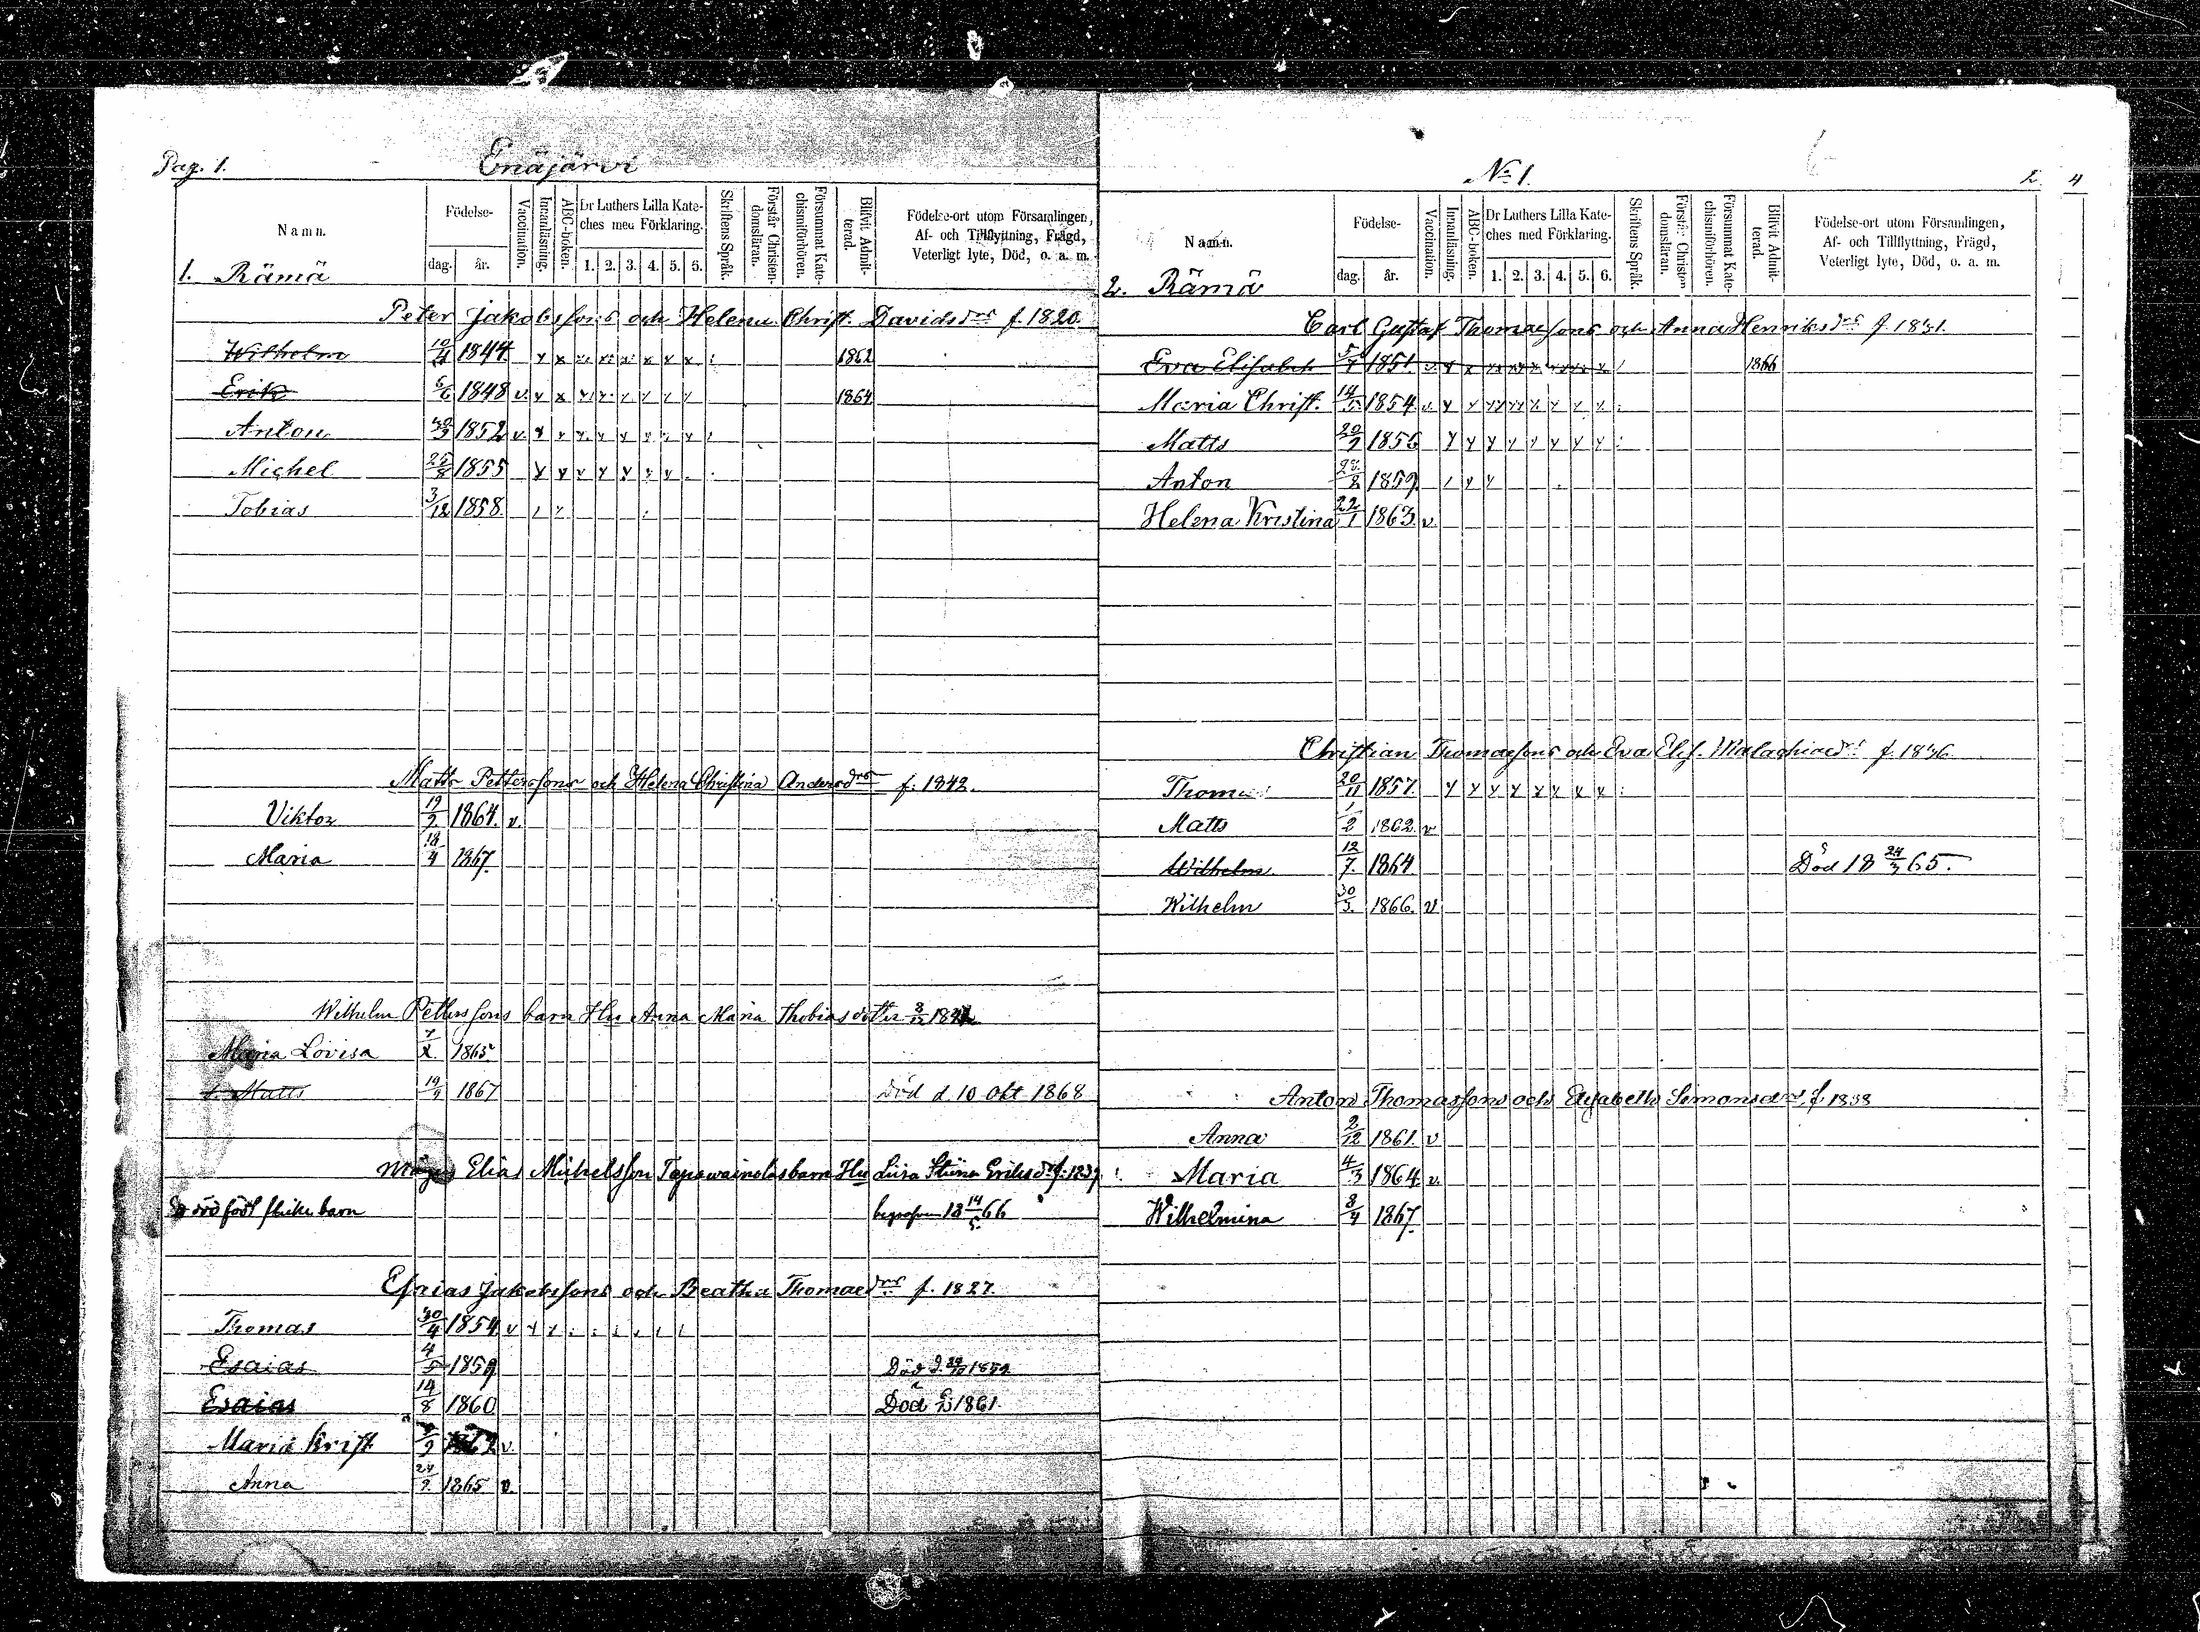 Pag. 1. Enäjärvi
Namn.
Födelse-
dag. år.
Vaccination.
Innanläsning.
ABC-boken.
Dr Luthers Lilla Kate-
ches med Förklaring.
1. 2. 3. 4. 5. 6.
Skriftens Språk.
Förstår Christen-
domsläran.
Försummat Kate-
chismiförhören.
Blifvit Admit-
terad.
Födelse-ort utom Församlingen,
Af- och Tillflyttning, Frägd,
Veterligt lyte, Död, o. a. m.
1. Rämä
Peter Jakobssons och Helena Christ. Davidsdrs f. 1820.
Wilhelm 1844 1862
Erik 5/6 1848 v. 1864
Anton 30/3 1852 v.
Michel 25/8 1855
Tobias 3/12 1858
Matts Petterssons och Helena Christina Andersdrs f. 1842.
Viktor 19/2 1864. v.
Maria 18/4 1867.
Wilhelm Petterssons barn Hu Anna Maria Thobiasdotter 8/12
Maria Lovisa 1865.
Matts 19/9 1867 död d. 10 Okt 1868
Elias Michelsson Tapawainolas barn Hu Lisa Stina Eriksdr f. 1839
dödfödt flickebarn begrafven 18 14/5 66
Esaias Jakobssons och Beatha Thomaedrs f. 1827.
Thomas 30/4 1854 v
Esaias 4/5 1859 Död d. 1859
Esaias 14/8 1860 Död 1861
Maria Krist v.
Anna 24/9 1865 v.
No 1. 2.
4
Namn.
Födelse-
dag. år.
Vaccination.
Innanläsning.
ABC-boken.
Dr Luthers Lilla Kate-
ches med Förklaring.
1. 2. 3. 4. 5. 6.
Skriftens Språk.
Förstår Christen-
domsläran.
Försummat Kate-
chismiförhören.
Blifvit Admit-
terad.
Födelse-ort utom Församlingen,
Af- och Tillflyttning, Frägd,
Veterligt lyte, Död, o. a. m.
2. Rämä
Carl Gustaf Thomaessons och Anna Henriksdrs f. 1831.
Eva Elisabet 1851. v. 1866
Maria Christ. 14/5 1854 v.
Matts 20/9 1856
Anton 1859
Helena Kristina 22/1 1863 v.
Christian Thomaessons och Eva Elis. Malachiaedrs f. 1836
Thomas 20/11 1857
Matts 1/2 1862 v
Wilhelm 12/7 1864 Död 18 24/3 65.
Wilhelm 30/3 1866. v
Anton Thomassons och Elisabeth Simonsdrs f. 1838
Anna 2/12 1861. v
Maria 4/3 1864 v.
Wilhelmina 8/4 1867.